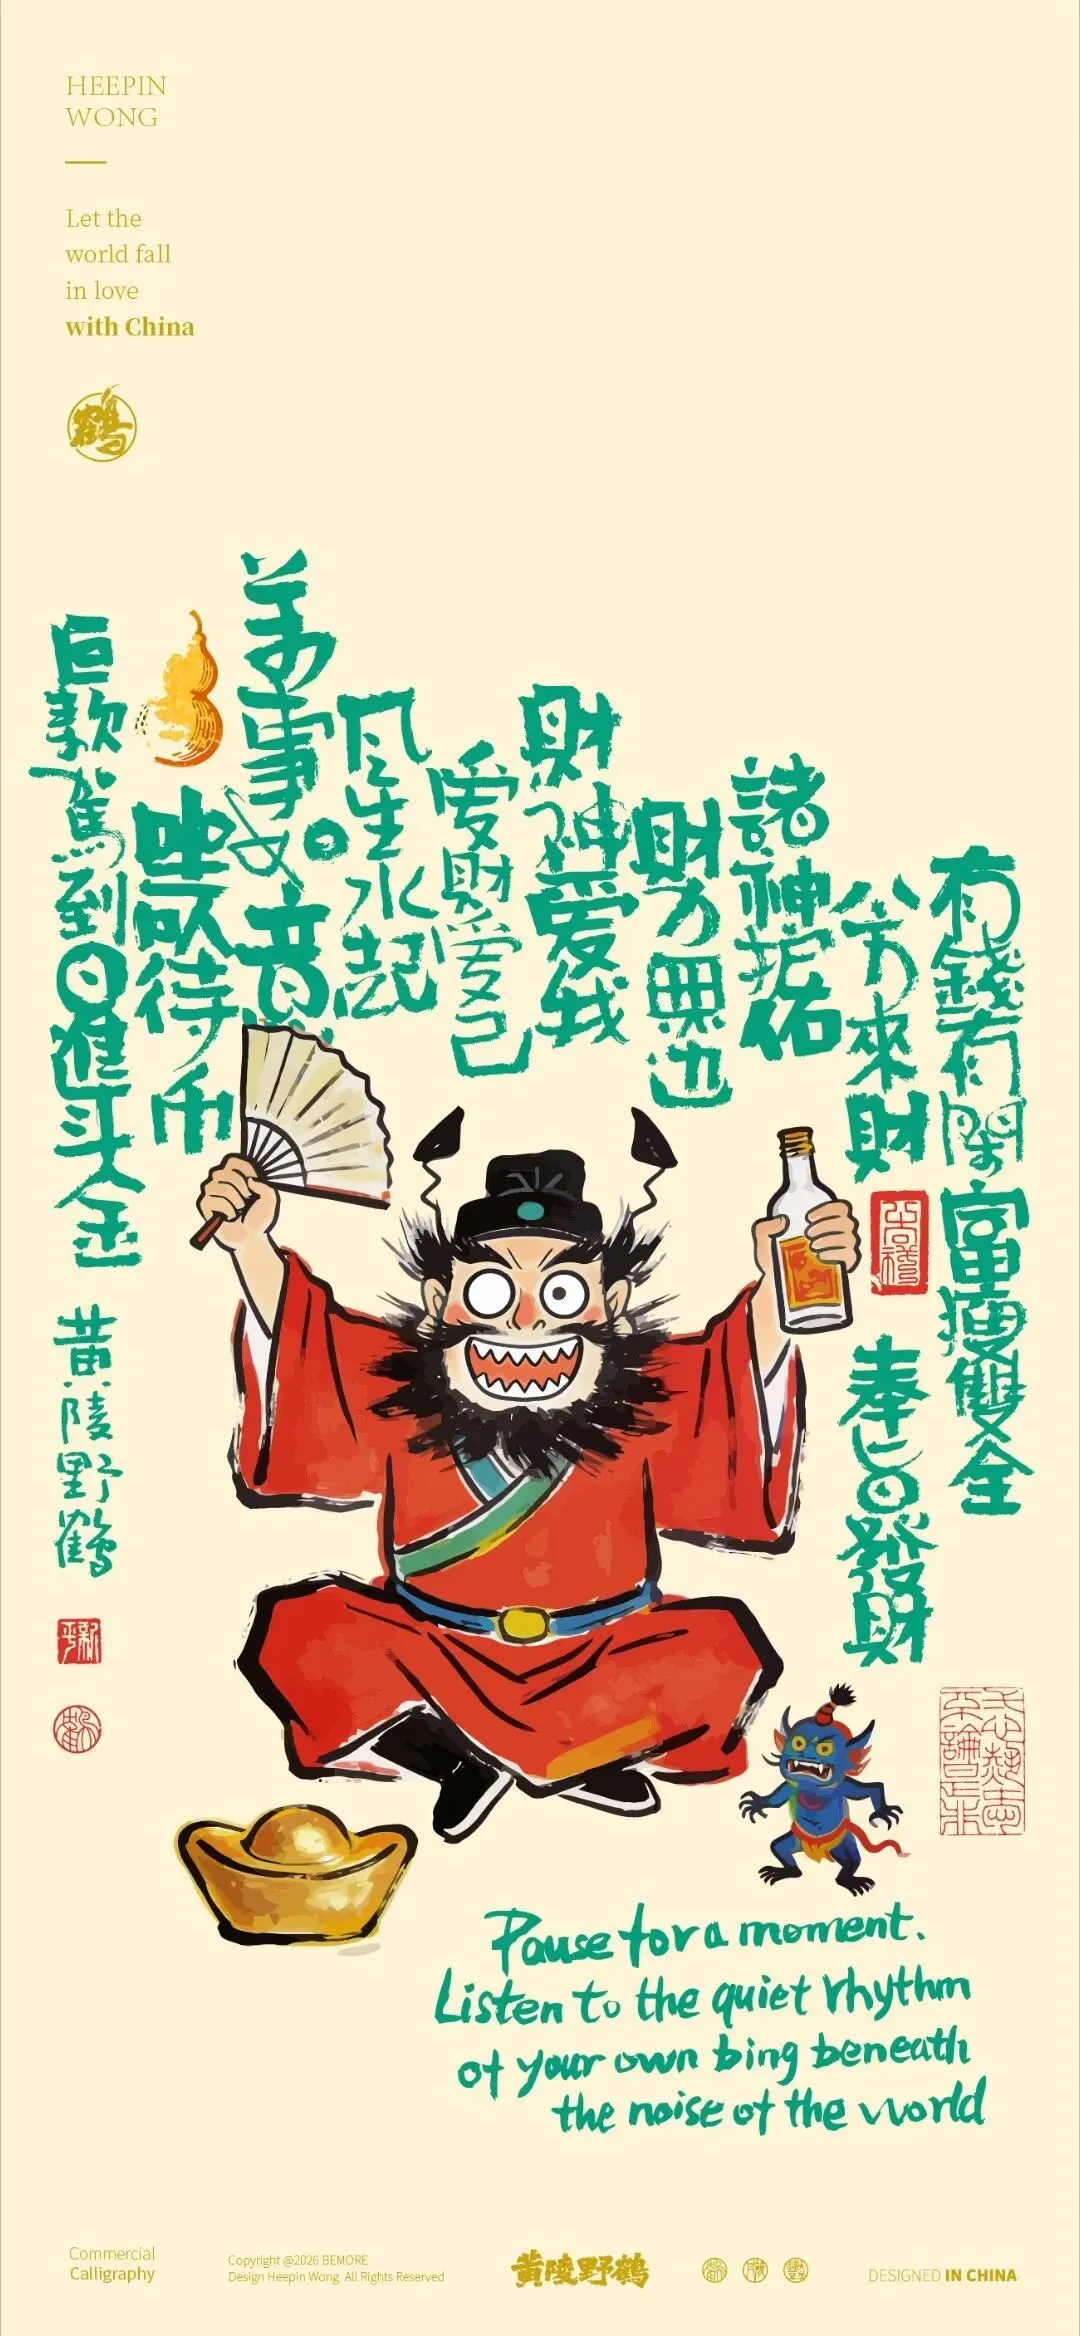 HEEPIN
WONG
Let the
world fall
in love
with China
鹤
有錢有閑富瘦雙全
八方來財
奉旨發財
諸神护佑
財力無边
財神爱我
爱財爱己
风生水起
事如意
坐以待币
巨款驾到日進斗金
黄陵野鹤
Pause for a moment.
Listen to the quiet rhythm
of your own bing beneath
the noise of the world
Commercial
Calligraphy
Copyright @2026 BEMORE
Design Heepin Wong All Rights Reserved
黄陵野鹤
DESIGNED IN CHINA